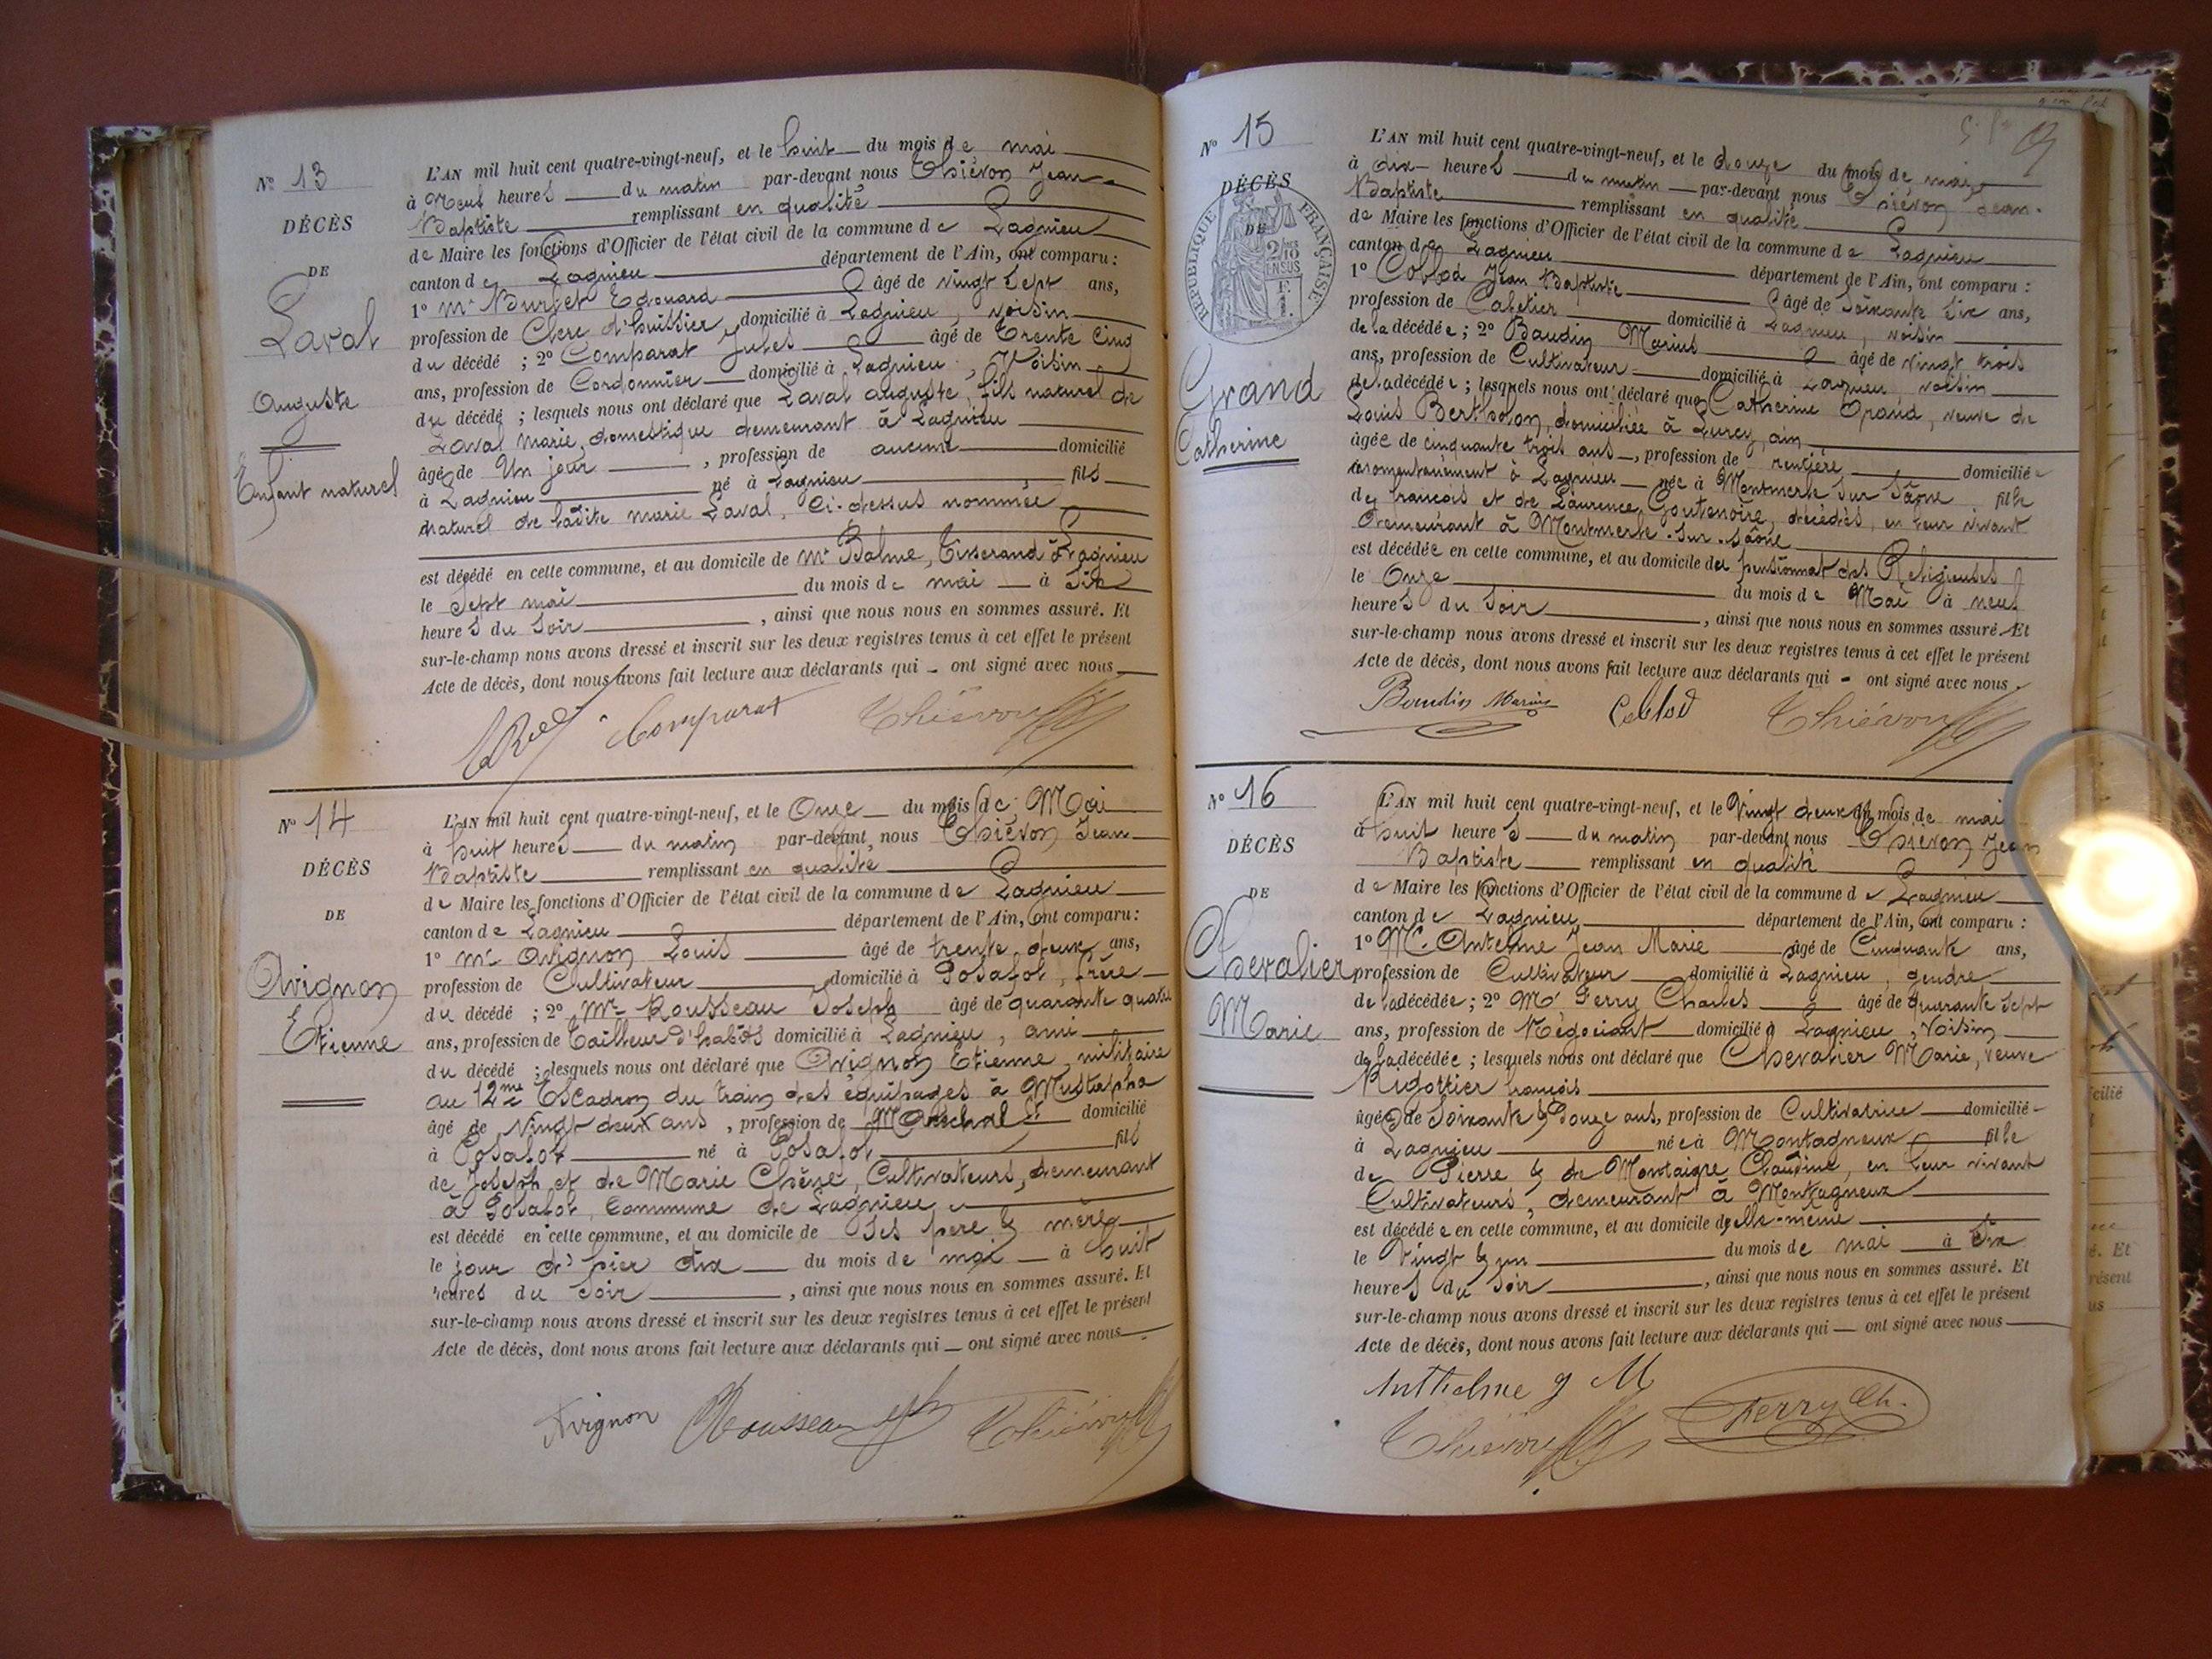 N° 13
DÉCÈS
DE
Laval
Auguste
Enfant naturel
L'AN mil huit cent quatre-vingt-neuf, et le huit du mois de mai
à Neuf heures du matin par-devant nous Thiévon Jean-
Baptiste remplissant en qualité
de Maire les fonctions d'Officier de l'état civil de la commune de Lagnieu
canton de Lagnieu département de l'Ain, ont comparu :
1° Mr Burjet Edouard âgé de vingt sept ans,
profession de Clerc d'huissier domicilié à Lagnieu, voisin
du décédé ; 2° Comparat Jules âgé de Trente cinq
ans, profession de Cordonnier domicilié à Lagnieu, Voisin
du décédé ; lesquels nous ont déclaré que Laval auguste, fils naturel de
Laval marie, domestique demeurant à Lagnieu
âgé de Un jour, profession de aucune domicilié
à Lagnieu né à Lagnieu fils
naturel de ladite marie Laval, ci-dessus nommée
est décédé en cette commune, et au domicile de Mr Balme, Tisserand à Lagnieu
le sept mai du mois de mai à six
heures du soir, ainsi que nous nous en sommes assuré. Et
sur-le-champ nous avons dressé et inscrit sur les deux registres tenus à cet effet le présent
Acte de décès, dont nous avons fait lecture aux déclarants qui – ont signé avec nous
Comparat Thiévon
N° 14
DÉCÈS
DE
Avignon
Etienne
L'AN mil huit cent quatre-vingt-neuf, et le Onze du mois de Mai
à huit heures du matin par-devant nous Thiévon Jean-
Baptiste remplissant en qualité
de Maire les fonctions d'Officier de l'état civil de la commune de Lagnieu
canton de Lagnieu département de l'Ain, ont comparu :
1° Mr Avignon Louis âgé de trente deux ans,
profession de Cultivateur domicilié à Posafol, frère
du décédé ; 2° Mr Rousseau Joseph âgé de quarante quatre
ans, profession de Tailleur d'habits domicilié à Lagnieu, ami
du décédé ; lesquels nous ont déclaré que Avignon Etienne, militaire
au 12me Escadron du train des équipages à Mustapha
âgé de Vingt deux ans, profession de Maréchal domicilié
à Posafol né à Posafol fils
de Joseph et de Marie Chêne, Cultivateurs, demeurant
à Posafol, Commune de Lagnieu
est décédé en cette commune, et au domicile de ses père & mère
le jour d'hier dix du mois de mai à huit
heures du soir, ainsi que nous nous en sommes assuré. Et
sur-le-champ nous avons dressé et inscrit sur les deux registres tenus à cet effet le présent
Acte de décès, dont nous avons fait lecture aux déclarants qui – ont signé avec nous
Avignon Rousseau Jph Thiévon
N° 15
DÉCÈS
DE
RÉPUBLIQUE FRANÇAISE
Grand
Catherine
L'AN mil huit cent quatre-vingt-neuf, et le douze du mois de mai
à dix heures du matin par-devant nous Thiévon Jean-
Baptiste remplissant en qualité
de Maire les fonctions d'Officier de l'état civil de la commune de Lagnieu
canton de Lagnieu département de l'Ain, ont comparu :
1° Collod Jean Baptiste âgé de soixante six ans,
profession de Cafetier domicilié à Lagnieu, voisin
de la décédée ; 2° Baudin Marius âgé de vingt trois
ans, profession de Cultivateur domicilié à Lagnieu voisin
de la décédée ; lesquels nous ont déclaré que Catherine Grand, veuve de
Louis Bertholon, domiciliée à Lurcy, ain
âgée de cinquante trois ans, profession de rentière domiciliée
momentanément à Lagnieu née à Montmerle sur Saône fille
de françois et de Laurence Goutenoire, décédés, en leur vivant
demeurant à Montmerle-sur-Saône
est décédée en cette commune, et au domicile du pensionnat des Religieuses
le Onze du mois de Mai à neuf
heures du soir, ainsi que nous nous en sommes assuré. Et
sur-le-champ nous avons dressé et inscrit sur les deux registres tenus à cet effet le présent
Acte de décès, dont nous avons fait lecture aux déclarants qui – ont signé avec nous.
Baudin Marius Collod Thiévon
N° 16
DÉCÈS
DE
Chevalier
Marie
L'AN mil huit cent quatre-vingt-neuf, et le Vingt deux du mois de mai
à huit heures du matin par-devant nous Thiévon Jean
Baptiste remplissant en qualité
de Maire les fonctions d'Officier de l'état civil de la commune de Lagnieu
canton de Lagnieu département de l'Ain, ont comparu :
1° Mr Antelme Jean Marie âgé de Cinquante ans,
profession de Cultivateur domicilié à Lagnieu, gendre
de la décédée ; 2° Mr Ferry Charles âgé de quarante sept
ans, profession de Négociant domicilié à Lagnieu, voisin
de la décédée ; lesquels nous ont déclaré que Chevalier Marie, veuve
Rigottier françois
âgée de soixante & Douze ans, profession de Cultivatrice domiciliée
à Lagnieu née à Montagneux fille
de Pierre & de Montaigre Claudine, en leur vivant
Cultivateurs, demeurant à Montagneux
est décédée en cette commune, et au domicile d'elle-même
le Vingt & un du mois de mai à six
heures du soir, ainsi que nous nous en sommes assuré. Et
sur-le-champ nous avons dressé et inscrit sur les deux registres tenus à cet effet le présent
Acte de décès, dont nous avons fait lecture aux déclarants qui – ont signé avec nous
Anthelme J M
Thiévon Ferry Ch.